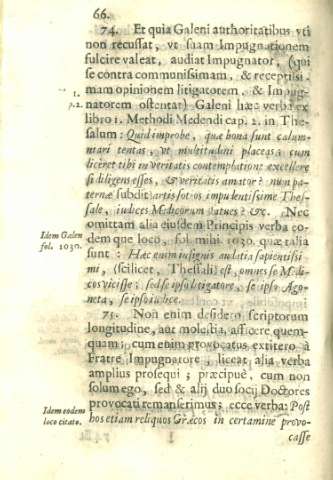 66.
74. Et quia Galeni authoritatibus vti
non recussat, vt suam Impugnationem
fulcire valeat, audiat Impugnator, (qui
se contra communissimam, & receptissi-
mam opinionem litigatorem, & Impug-
natorem ostentat) Galeni hæc verba ex
libro 1. Methodi Medendi cap. 2. in Thes-
salum: Quid improbe, quæ bona sunt calum-
niari tentas, vt multitudini placeas; cum
liceret tibi in veritatis contemplatione excellere
si diligens esses, & veritatis amator? num pa-
ternæ subdit artis sotios impudentissime Thes-
sale, iudices Medicorum statues? &c. Nec
omittam alia eiusdem Principis verba eo-
dem que loco, fol. mihi 1030. quæ talia
sunt: Hæc quim insignis audatia sapientissi-
mi, (scilicet, Thessali) est, omnes se Medi-
cos vicisse; sed se ipso litigatore, se ipso Ago-
neta, se ipso iudice.
75. Non enim desidero scriptorum
longitudine, aut molestia, afficere quem-
quam; cum enim provocatus extitero à
Fratre Impugnatore, liceat alia verba
amplius prosequi; præcipuè, cum non
solum ego, sed & alij duo socij Doctores
provocati remanserimus; ecce verba: Post
hos etiam reliquos Græcos in certamine provo-
casse
1.
p.2.
Idem Galen
fol. 1030.
Idem eodem
loco citato.